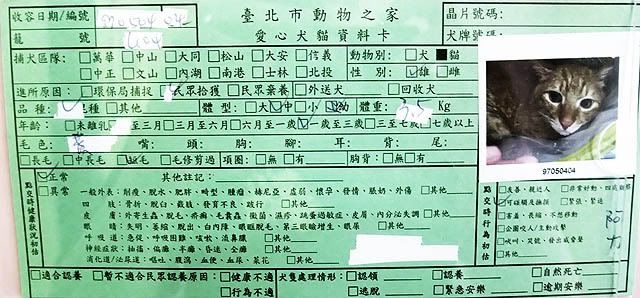 收容日期/編號 970504 04
臺北市動物之家
晶片號碼:
籠 號 604
愛心犬貓資料卡
犬牌號碼:
捕犬區隊: □萬華 □中山 □大同 □松山 □大安 □信義 動物別: □犬 ■貓
□中正 □文山 □內湖 □南港 □士林 □北投 性 別: □雄 □雌
進所原因: □環保局捕捉 民眾拾獲 □民眾棄養 □外送犬 □回收犬
品 種: 種 □其他 體 型: □大 中 □小 幼 體重: 3.5 Kg
年齡: □未離乳 至三月 □三月至六月 □六月至一歲 一歲至三歲 □三至七歲 □七歲以上
毛 色: 嘴: 頭: 胸: 腳: 耳: 背: 尾:
□長毛 □中長毛 短毛 □毛修剪過 項圈: □無 □有 胸背: □無 □有
97050404
點交時健康狀況初估
正常 其他註記:
□異常 一般外表: 削瘦、脫水、肥胖、畸型、腫瘤、補尼亞、虛弱、懷孕、發情、脹奶、外傷 □其他
四 肢: 骨折、脫臼、截肢、發育不良、跛行 □其他
皮 膚: 外寄生蟲、脫毛、疥癬、毛囊蟲、黴菌、濕疹、跳蚤過敏症、皮屑、內分泌失調 □其他
眼 睛: 失明、萎縮、脫出、白內障、眼眶脫毛、第三眼瞼增生、眼屎 □其他
呼 吸 道: 急促、呼吸困難、咳嗽、流鼻膿 □其他
神經症狀: 抽搐、偏癱、不癱、昏迷、全癱 □其他
消化道/泌尿道: 嘔吐、腹瀉、血便、血尿、菜花 □其他
點交時行為初估
□友善、親近人 □非常好動、四處
可碰觸及撫摸 □緊張、緊迫
□害羞、長縮、不想移動
□公開咬人/主動攻擊
□吠叫、哭號、發出威脅聲
□其他
□適合認養 □暫不適合民眾認養原因: □健康不適 犬隻處理情形: □認領 □認養 □自然死亡
□行為不適 □逃脫 □緊急安樂 □逾期安樂